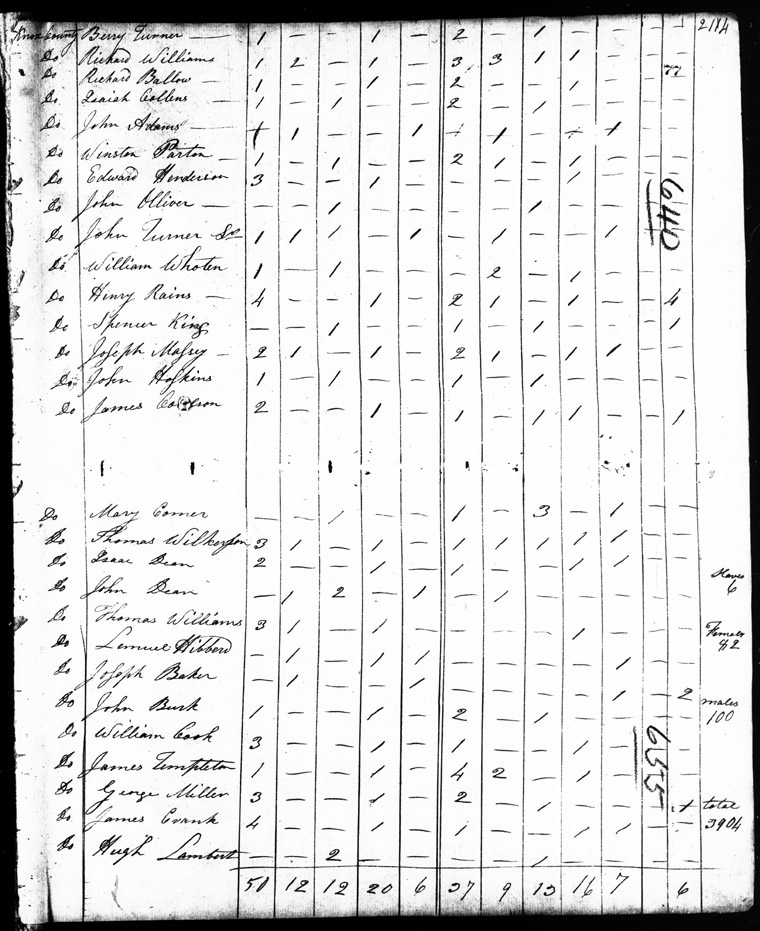 Knox County Berry Turner — 1 — — 1 — 2 — 1 — — — — 2114
Do Richard Williams 1 2 — 1 — 3 3 1 1 — — —
Do Richard Ballow — 1 — — 1 — 2 — — 1 — — —
Do Isaiah Collens 1 — 1 — — 2 — 1 — — — —
Do John Adams — 1 1 — — 1 — 1 — — 1 — —
Do Winston Parton — 1 — 1 — — 2 1 — 1 — — —
Do Edward Henderson 3 — — 1 — — — — 1 — — —
Do John Olliver — — — 1 — — — — 1 — — — —
640
Do John Turner Sr 1 1 1 — 1 — 1 — — 1 — —
Do William Whoten 1 — 1 — — — 2 — 1 — — —
Do Henry Rains — 4 — — 1 — 2 1 — 1 — — 4
Do Spencer King — — 1 — — 1 — 1 — — — 1
Do Joseph Massey — 2 1 — 1 — 2 1 — 1 1 — —
Do John Hoskins 1 — 1 — — 1 — 1 — — — —
Do James 2 — — 1 — 1 — 1 1 — — 1
Do Mary Comer — — 1 — — 1 — 3 — 1 — —
Do Thomas Wilkerson 3 1 — 1 — 1 1 1 1 1 — —
Do Isaac Dean 2 — — 1 — 1 — — 1 1 — —
Do John Dean — 1 2 — 1 — 1 — — — — — Slaves 6
Do Thomas Williams 3 1 — 1 — — — — 1 — — —
Do Lemuel Hibberd — 1 — 1 1 — — — — 1 — — Females 82
Do Joseph Baker — 1 — — 1 — — — — 1 — 2
Do John Burk 1 — — 1 — 2 — 1 — — — — males 100
Do William Cook 3 — — 1 — 1 — — 1 — — —
655
Do James Templeton 1 — — 1 — 4 2 — 1 — — —
Do George Miller 3 — — 1 — 2 — 1 — — — total
Do James 4 — — 1 — 1 — — 1 1 — — 3904
Do Hugh Lambert — — 2 — — — — 1 — — — —
51 12 12 20 6 37 9 13 16 7 6